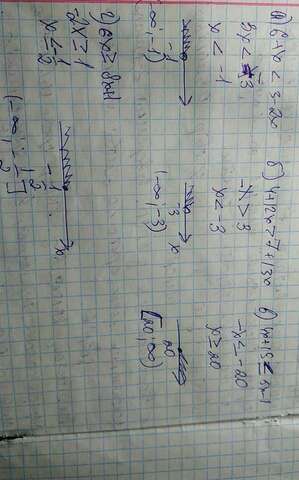 а) 6+x < 3-2x
3x < -3
x < -1
-1
(-∞; -1)
б) 4+12x > 7+13x
-x > 3
x < -3
-3 x
(-∞; -3)
в)
-x ≤ -20
x ≥ 20
20
[20; ∞)
г) 6x ≥ 8x+1
-2x ≥ 1
x ≤ -1/2
-1/2 x
(-∞; -1/2]